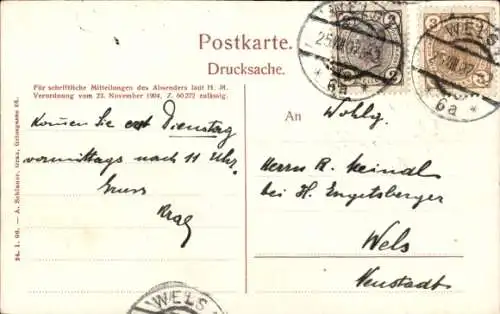 Postkarte.
Drucksache.
Für schriftliche Mitteilungen des Absenders laut H. M.
Verordnung vom 23. November 1904, Z. 50272 zulässig.
Kommen Sie erst Dienstag
vormittags nach 11 Uhr.
Gruss
An Wohlg.
Herrn R. Meindl
bei H. Engetsberger
Wels
Neustadt
WELS
25 VIII 07
6a
WELS
25 VIII 07
6a
WELS